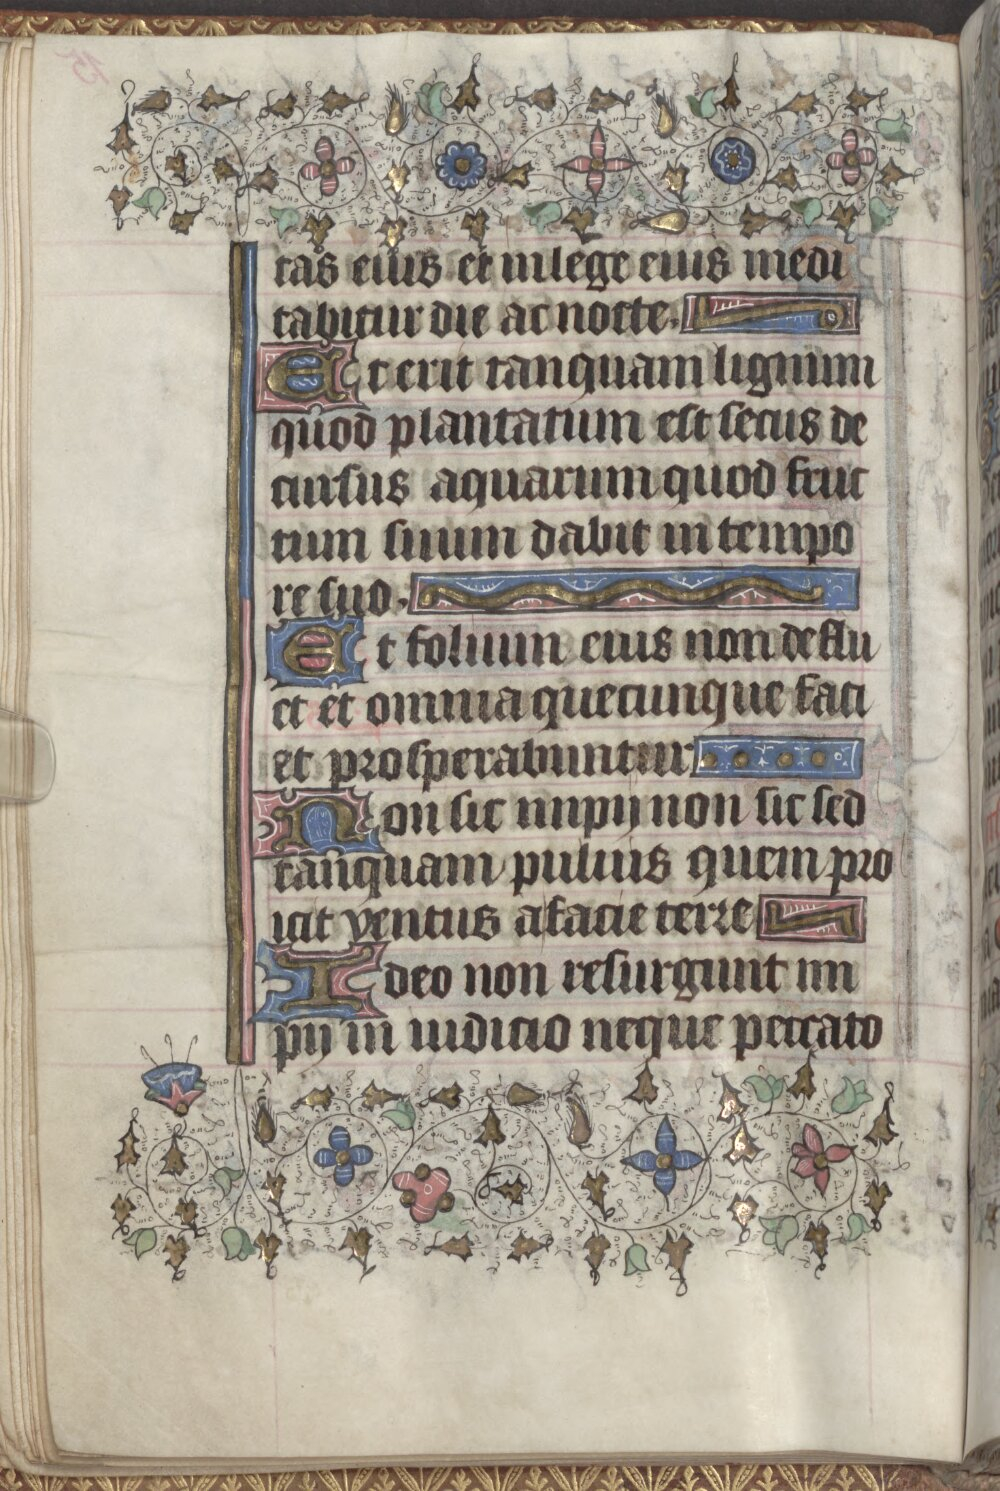 tas eius et in lege eius medi
tabitur die ac nocte.
Et erit tanquam lignum
quod plantatum est secus de
cursus aquarum quod fruc
tum suum dabit in tempo
re suo.
Et folium eius non deflu
et et omnia quecunque faci
et prosperabuntur
Non sic impij non sic sed
tanquam puluis quem pro
icit ventus a facie terre
Ideo non resurgunt im
pij in iudicio neque peccato